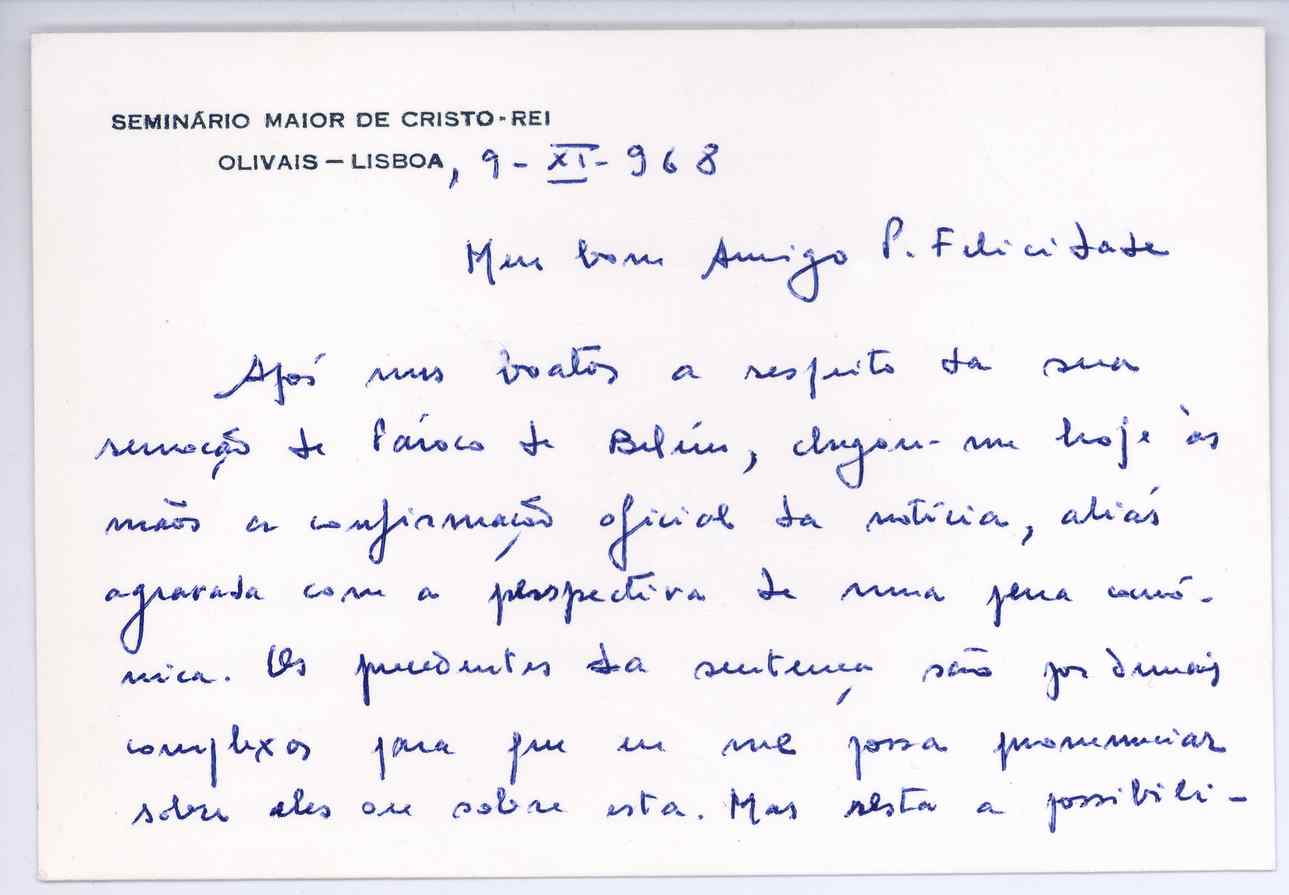 SEMINÁRIO MAIOR DE CRISTO-REI
OLIVAIS — LISBOA, 9-XI-968
Meu bom Amigo P. Felicidade
Após uns boatos a respeito da sua
remoção de Pároco de Belém, chegou-me hoje às
mãos a confirmação oficial da notícia, aliás
agravada com a perspectiva de uma pena canó-
nica. Os precedentes da sentença são por demais
complexos para que eu me possa pronunciar
sobre eles ou sobre esta. Mas resta a possibili-